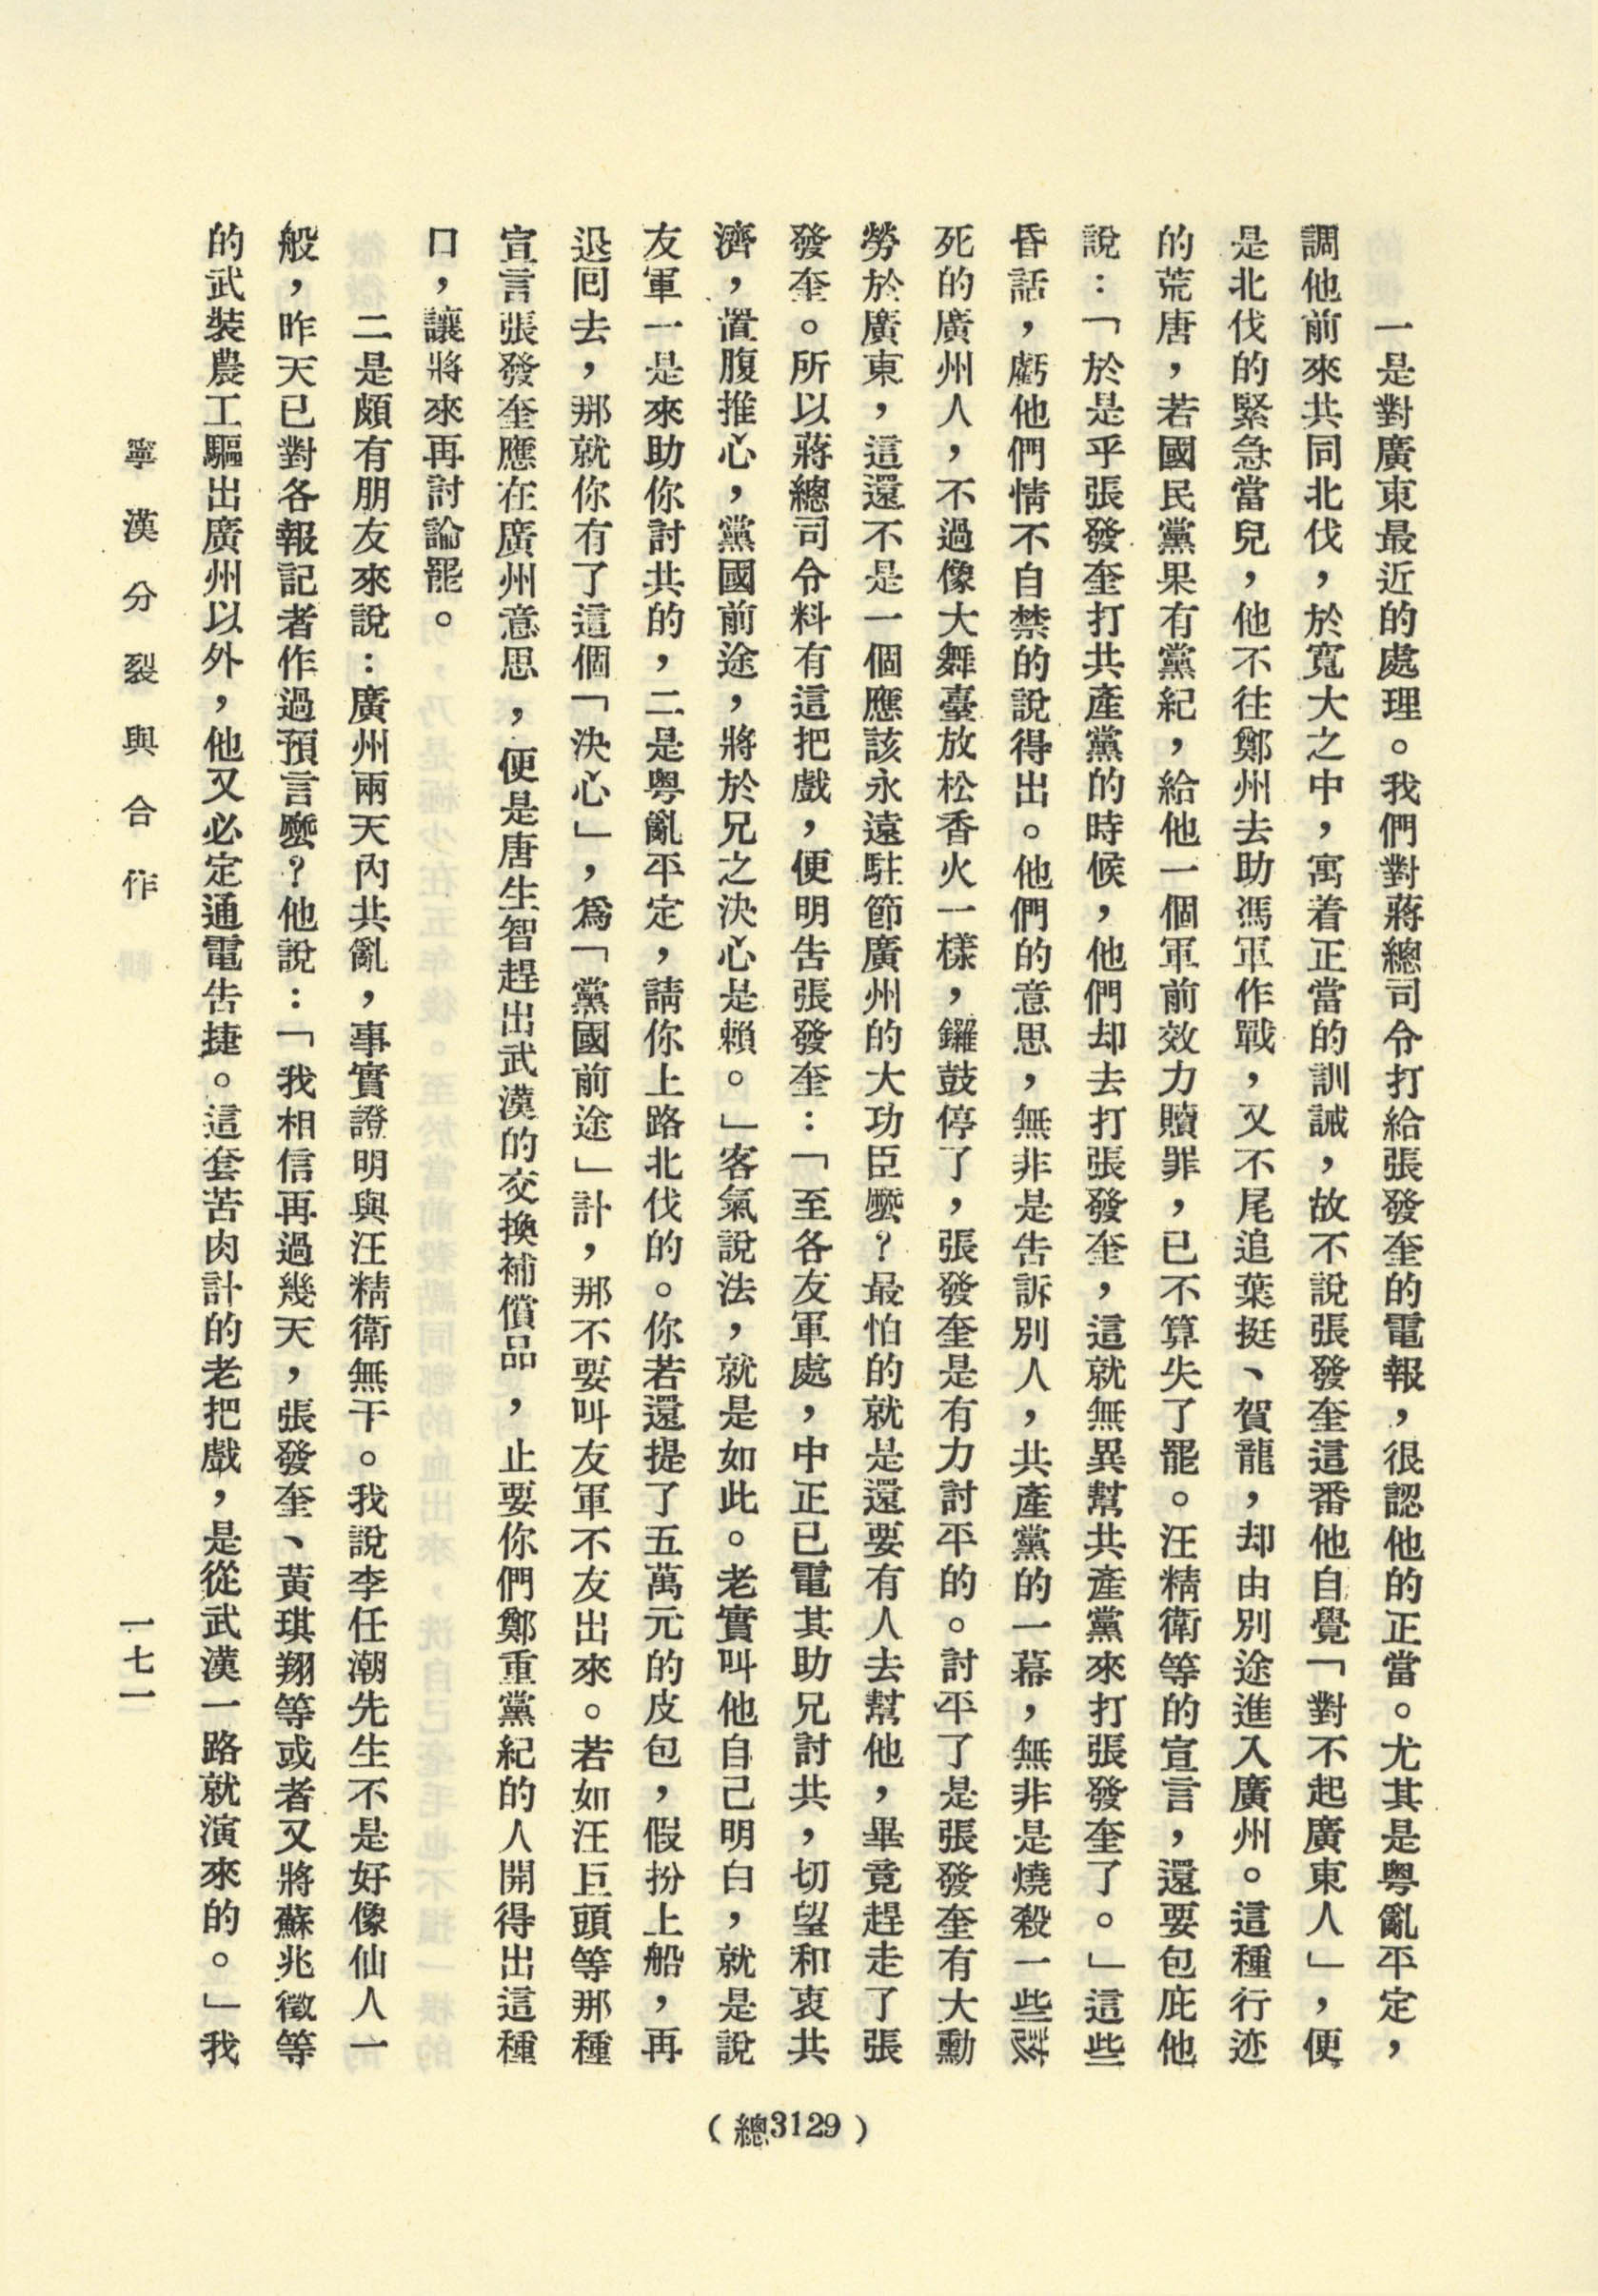 一是對廣東最近的處理。我們對蔣總司令打給張發奎的電報，很認他的正當。尤其是粤亂平定，
調他前來共同北伐，於寬大之中，寓着正當的訓誡，故不說張發奎這番他自覺「對不起廣東人」，便
是北伐的緊急當兒，他不往鄭州去助馮軍作戰，又不尾追葉挺、賀龍，却由別途進入廣州。這種行迹
的荒唐，若國民黨果有黨紀，給他一個軍前效力贖罪，已不算失了罷。汪精衛等的宣言，還要包庇他
說：「於是乎張發奎打共產黨的時候，他們却去打張發奎，這就無異幫共產黨來打張發奎了。」這些
昏話，虧他們情不自禁的說得出。他們的意思，無非是告訴別人，共產黨的一幕，無非是燒殺一些該
死的廣州人，不過像大舞臺放松香火一樣，鑼鼓停了，張發奎是有力討平的。討平了是張發奎有大勳
勞於廣東，這還不是一個應該永遠駐節廣州的大功臣麼？最怕的就是還要有人去幫他，畢竟趕走了張
發奎。所以蔣總司令料有這把戲，便明告張發奎：「至各友軍處，中正已電其助兄討共，切望和衷共
濟，置腹推心，黨國前途，將於兄之決心是賴。」客氣說法，就是如此。老實叫他自己明白，就是說
友軍一是來助你討共的，二是粤亂平定，請你上路北伐的。你若還提了五萬元的皮包，假扮上船，再
退回去，那就你有了這個「決心」，爲「黨國前途」計，那不要叫友軍不友出來。若如汪巨頭等那種
宣言張發奎應在廣州意思，便是唐生智趕出武漢的交換補償品，止要你們鄭重黨紀的人開得出這種
口，讓將來再討論罷。
二是頗有朋友來說：廣州兩天內共亂，事實證明與汪精衛無干。我說李任潮先生不是好像仙人一
般，昨天已對各報記者作過預言麼？他說：「我相信再過幾天，張發奎、黃琪翔等或者又將蘇兆徵等
的武裝農工驅出廣州以外，他又必定通電告捷。這套苦肉計的老把戲，是從武漢一路就演來的。」我
寧漢分裂與合作
一七一
（總3129）